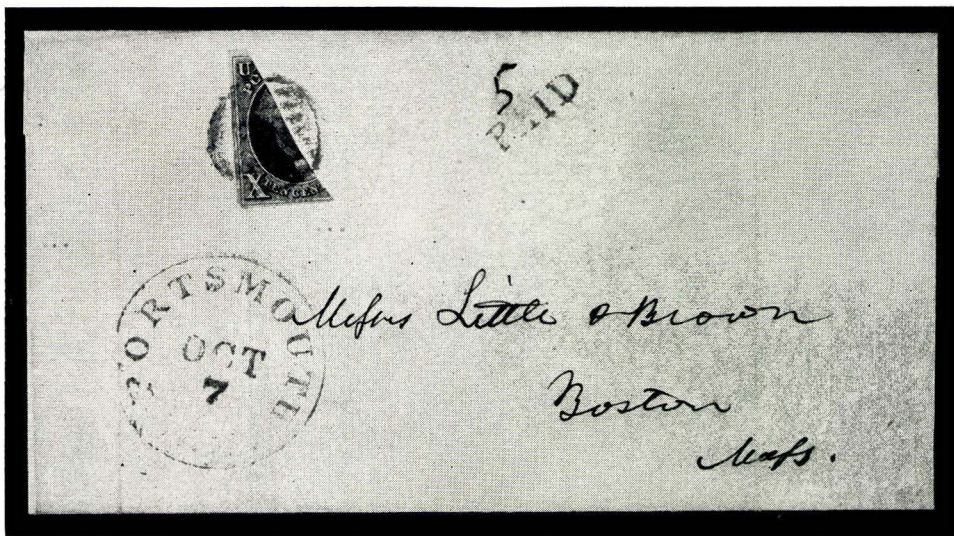 U
PO
X TEN CEN
5
PAID
PORTSMOUTH
OCT
7
Messrs Little & Brown
Boston
Mass.